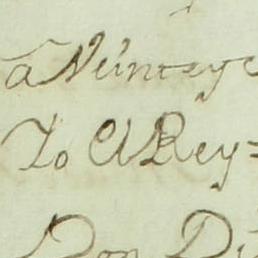 a Veinteyc
Yo El Rey=
Don Di